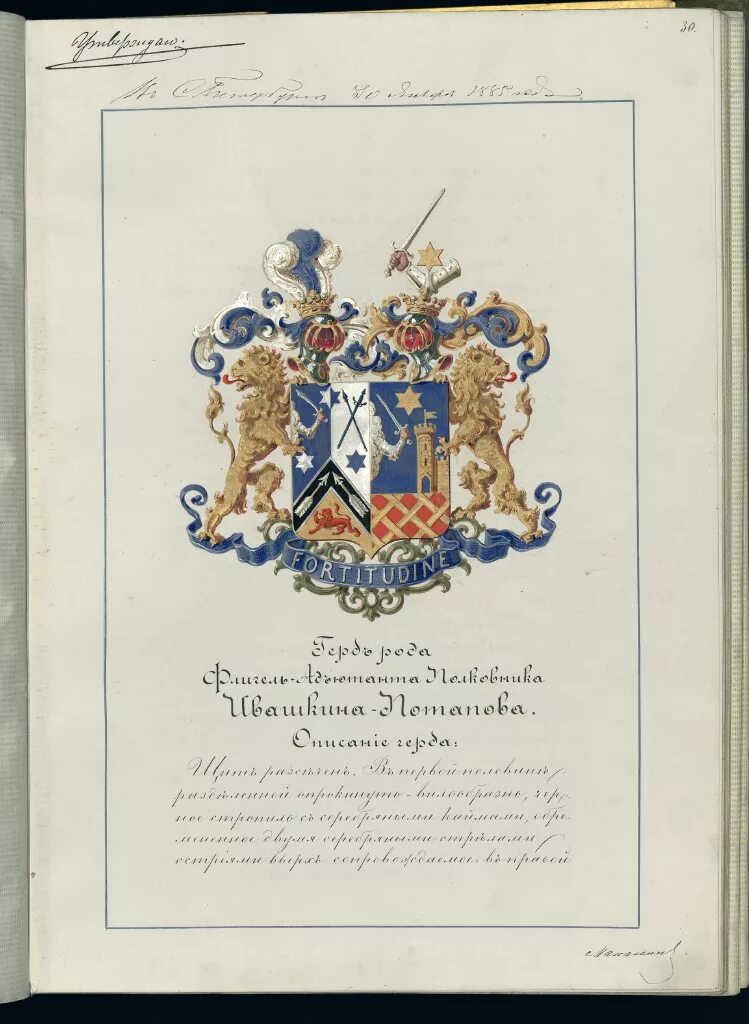 30.
Утверждаю.
Въ С. Петербургѣ 30 Января 1885 года
FORTITUDINE
Гербъ рода
Флигель-Адъютанта Полковника
Ивашкина-Потапова.
Описаніе герба:
Щитъ разсѣченъ. Въ первой половинѣ,
раздѣленной опрокинуто-вилообразно, чер-
ное стропило съ серебряными каймами, обре-
мененное двумя серебряными стрѣлами
остріями вверхъ сопровождаемое: въ правой